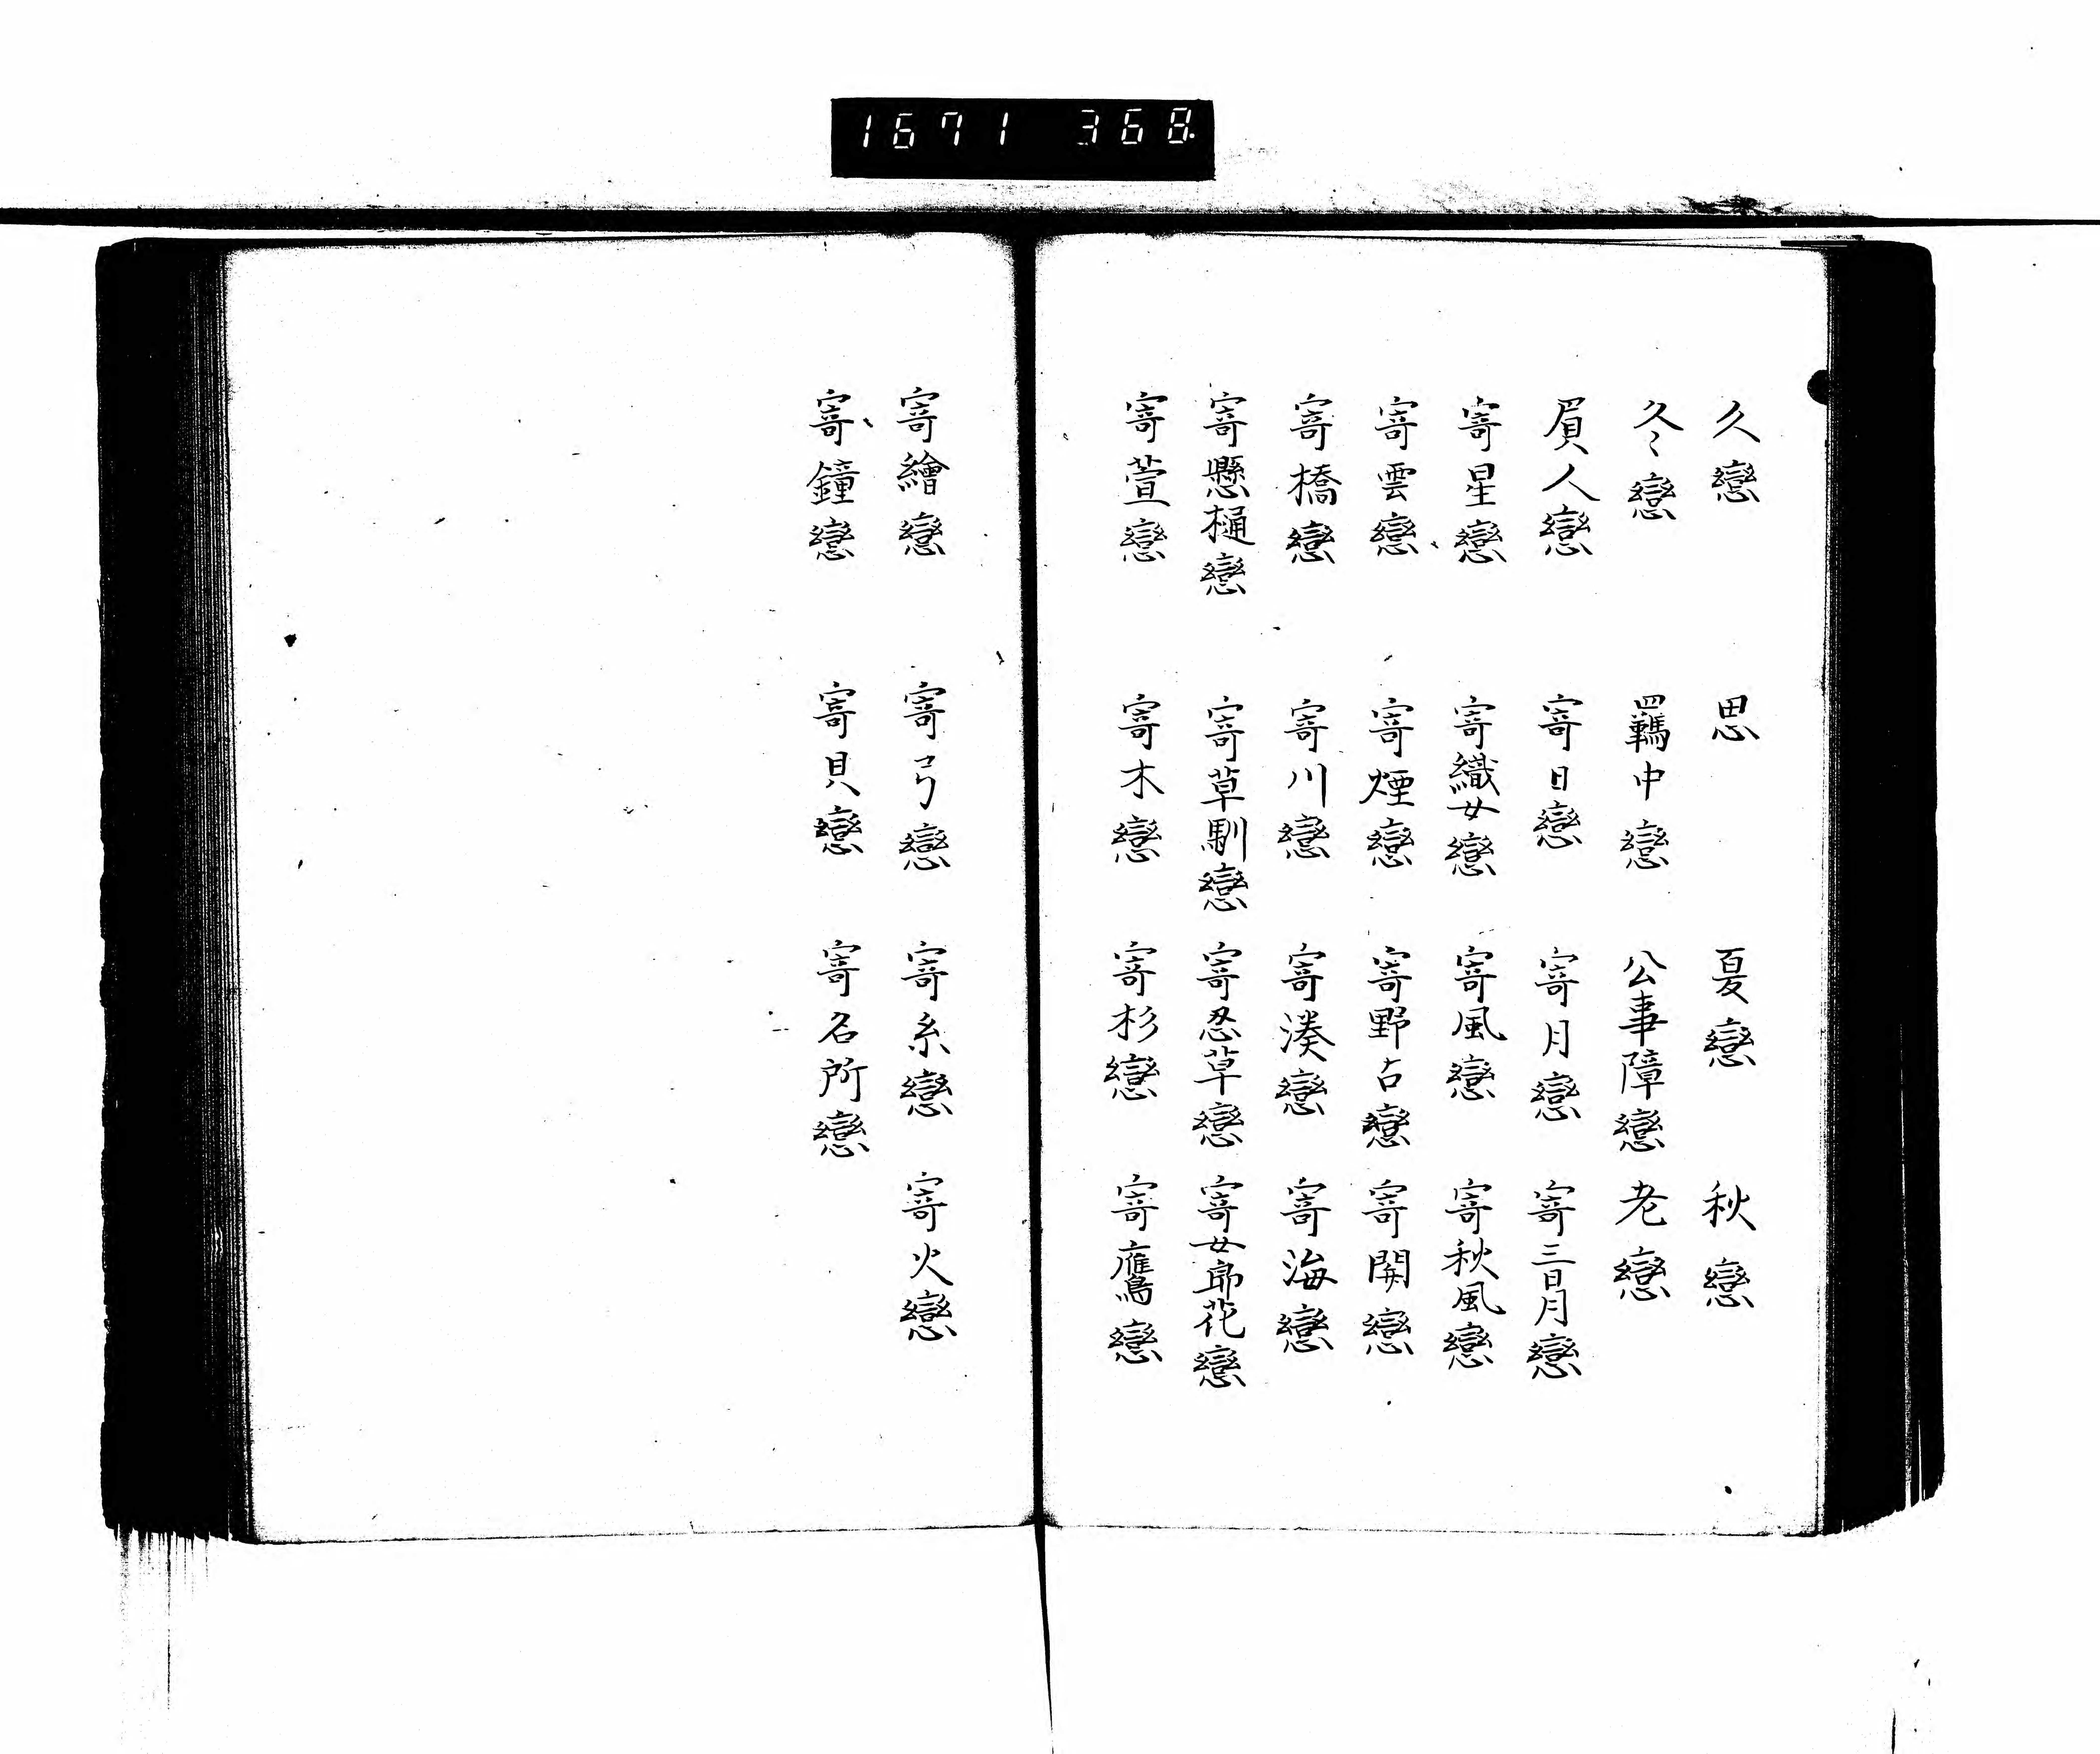 1671 368
久戀 思 夏戀 秋戀
冬戀 羈中戀 公事障戀 老戀
貭人戀 寄日戀 寄月戀 寄三日月戀
寄星戀 寄織女戀 寄風戀 寄秋風戀
寄雲戀 寄煙戀 寄野占戀 寄関戀
寄橋戀 寄川戀 寄湊戀 寄海戀
寄懸樋戀 寄草馴戀 寄忍草戀 寄女郎花戀
寄萱戀 寄木戀 寄杉戀 寄鷹戀
寄繪戀 寄弓戀 寄糸戀 寄火戀
寄鐘戀 寄貝戀 寄名所戀